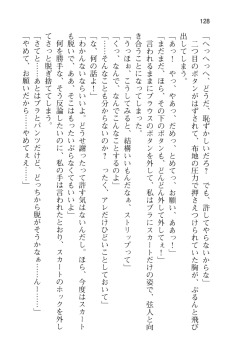 128
「へっへっへ、どうだ、恥ずかしいだろ？　でも、許してやらないからな」
二つ目のボタンがはずされて、布地の圧力で押さえつけられていた胸が、ぷるんと飛び
「あっ！　やっ、やめっ、だめっ、とめてっ、お願い、ああっ！」
「まだまだ、ほら、その下のボタンも、どんどん外して外して」
言われるままにブラウスのボタンを外して、私はブラにスカートだけの姿で、弦人と向
き合うことになってしまった。
「うっほぉ、こうしてみると、結構いいもんだなぁ、ストリップって」
「そんなことも分からないのか？　ったく、アレだけ
「な、何の話よ！」
「わかんないならいいよ、どうせ謝ったって許す気ないんだし、ほら、今度はスカート
も脱いで、ああ、そこはもったいぶらなくてもいいから、
てさっと脱ぎ捨てて」
何を勝手な、そう反論したいのに、私の手は言われたとおり、スカートのホックを外し
「さてと……あとはブラとパンツだけど、どっちから脱がそうかなぁ……ん……」
「やめて、お願いだから……やめてぇぇ……」